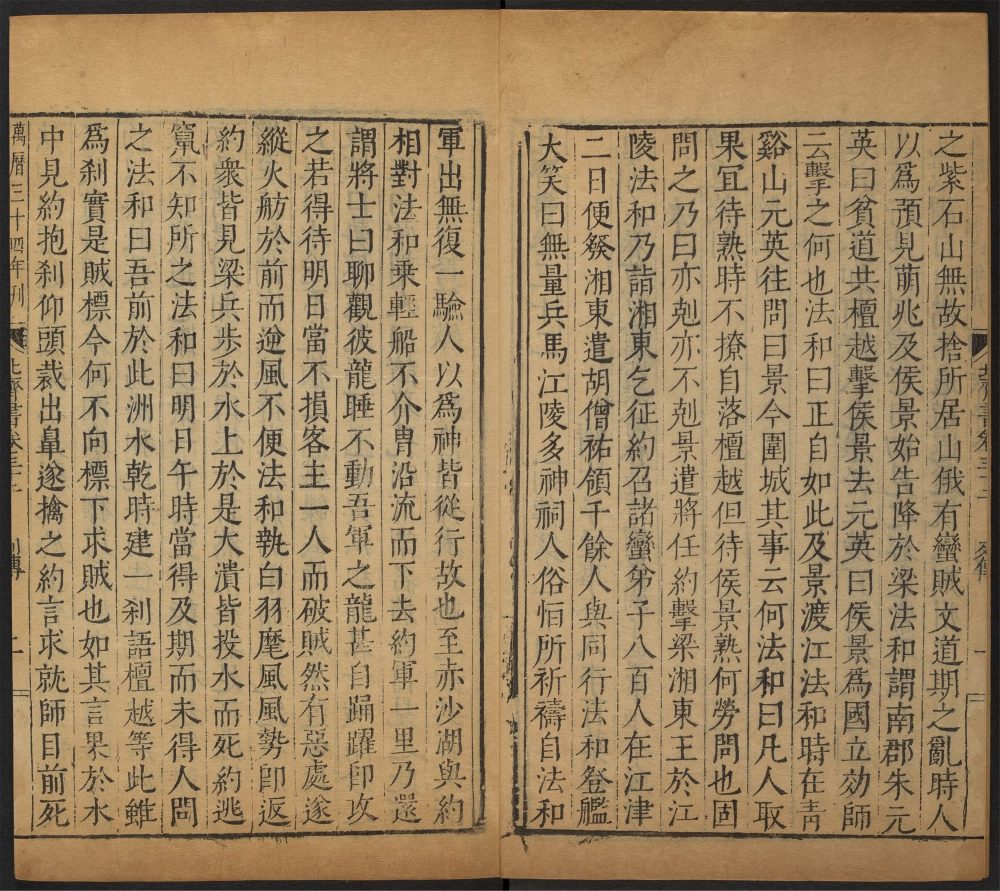 之紫石山無故捨所居山俄有蠻賊文道期之亂時人
以爲預見萌兆及侯景始告降於梁法和謂南郡朱元
英曰貧道共檀越擊侯景去元英曰侯景爲國立効師
云擊之何也法和曰正自如此及景渡江法和時在青
谿山元英往問曰景今圍城其事云何法和曰凡人取
果宜待熟時不撩自落檀越但待侯景熟何勞問也固
問之乃曰亦剋亦不剋景遣將任約擊梁湘東王於江
陵法和乃詣湘東乞征約召諸蠻弟子八百人在江津
二日便發湘東遣胡僧祐領千餘人與同行法和登艦
大笑曰無量兵馬江陵多神祠人俗恒所祈禱自法和
軍出無復一驗人以爲神皆從行故也至赤沙湖與約
相對法和乘輕船不介胄沿流而下去約軍一里乃還
謂將士曰聊觀彼龍睡不動吾軍之龍甚自踊躍卽攻
之若得待明日當不損客主一人而破賊然有惡處遂
縱火舫於前而逆風不便法和執白羽麾風風勢卽返
約衆皆見梁兵步於水上於是大潰皆投水而死約逃
竄不知所之法和曰明日午時當得及期而未得人問
之法和曰吾前於此洲水乾時建一刹語檀越等此雖
爲刹實是賊標今何不向標下求賊也如其言果於水
中見約抱刹仰頭裁出鼻遂擒之約言求就師目前死
萬曆三十四年刊
北齊書卷三十二
列傳
二